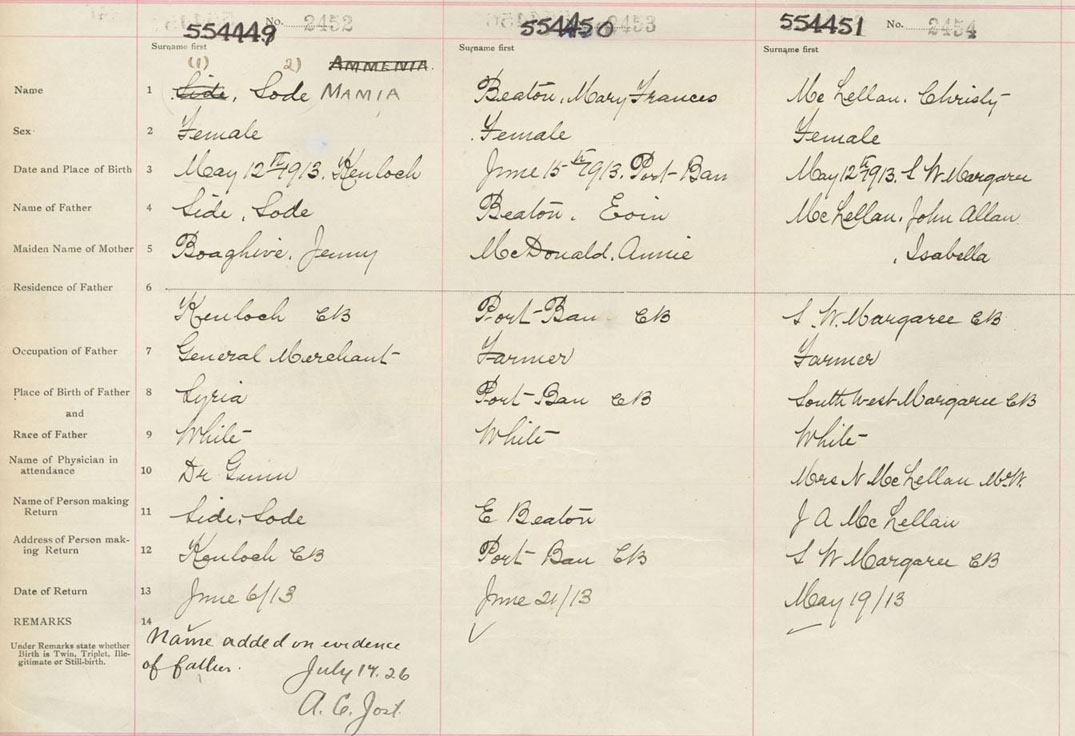 No. 2452 No. 2453 No. 2454
554449 554450 554451
Surname first Surname first Surname first
(1) 2) AMMENIA.
Name 1 Side, Sode MAMIA Beaton, Mary Frances Mc Lellan, Christy
Sex 2 Female Female Female
Date and Place of Birth 3 May 12th 1913. Kenloch June 15th 1913. Port-Ban May 12th 1913. S W. Margaree
Name of Father 4 Side, Sode Beaton, Eoin Mc Lellan, John Allan
Maiden Name of Mother 5 Boaghive, Jenny McDonald, Annie , Isabella
Residence of Father 6
Kenloch CB Port-Ban CB S. W. Margaree CB
Occupation of Father 7 General Merchant Farmer Farmer
Place of Birth of Father 8 Syria Port-Ban CB South West Margaree CB
and
Race of Father 9 White White White
Name of Physician in
attendance 10 Dr Gunn Mrs N McLellan M.W.
Name of Person making
Return 11 Side, Sode E Beaton J A McLellan
Address of Person mak-
ing Return 12 Kenloch CB Port Ban CB S W Margaree CB
Date of Return 13 June 6/13 June 21/13 May 19/13
REMARKS 14
Under Remarks state whether
Birth is Twin, Triplet, Ille-
gitimate or Still-birth.
Name added on evidence
of father. July 14. 26
A. C. Jost.